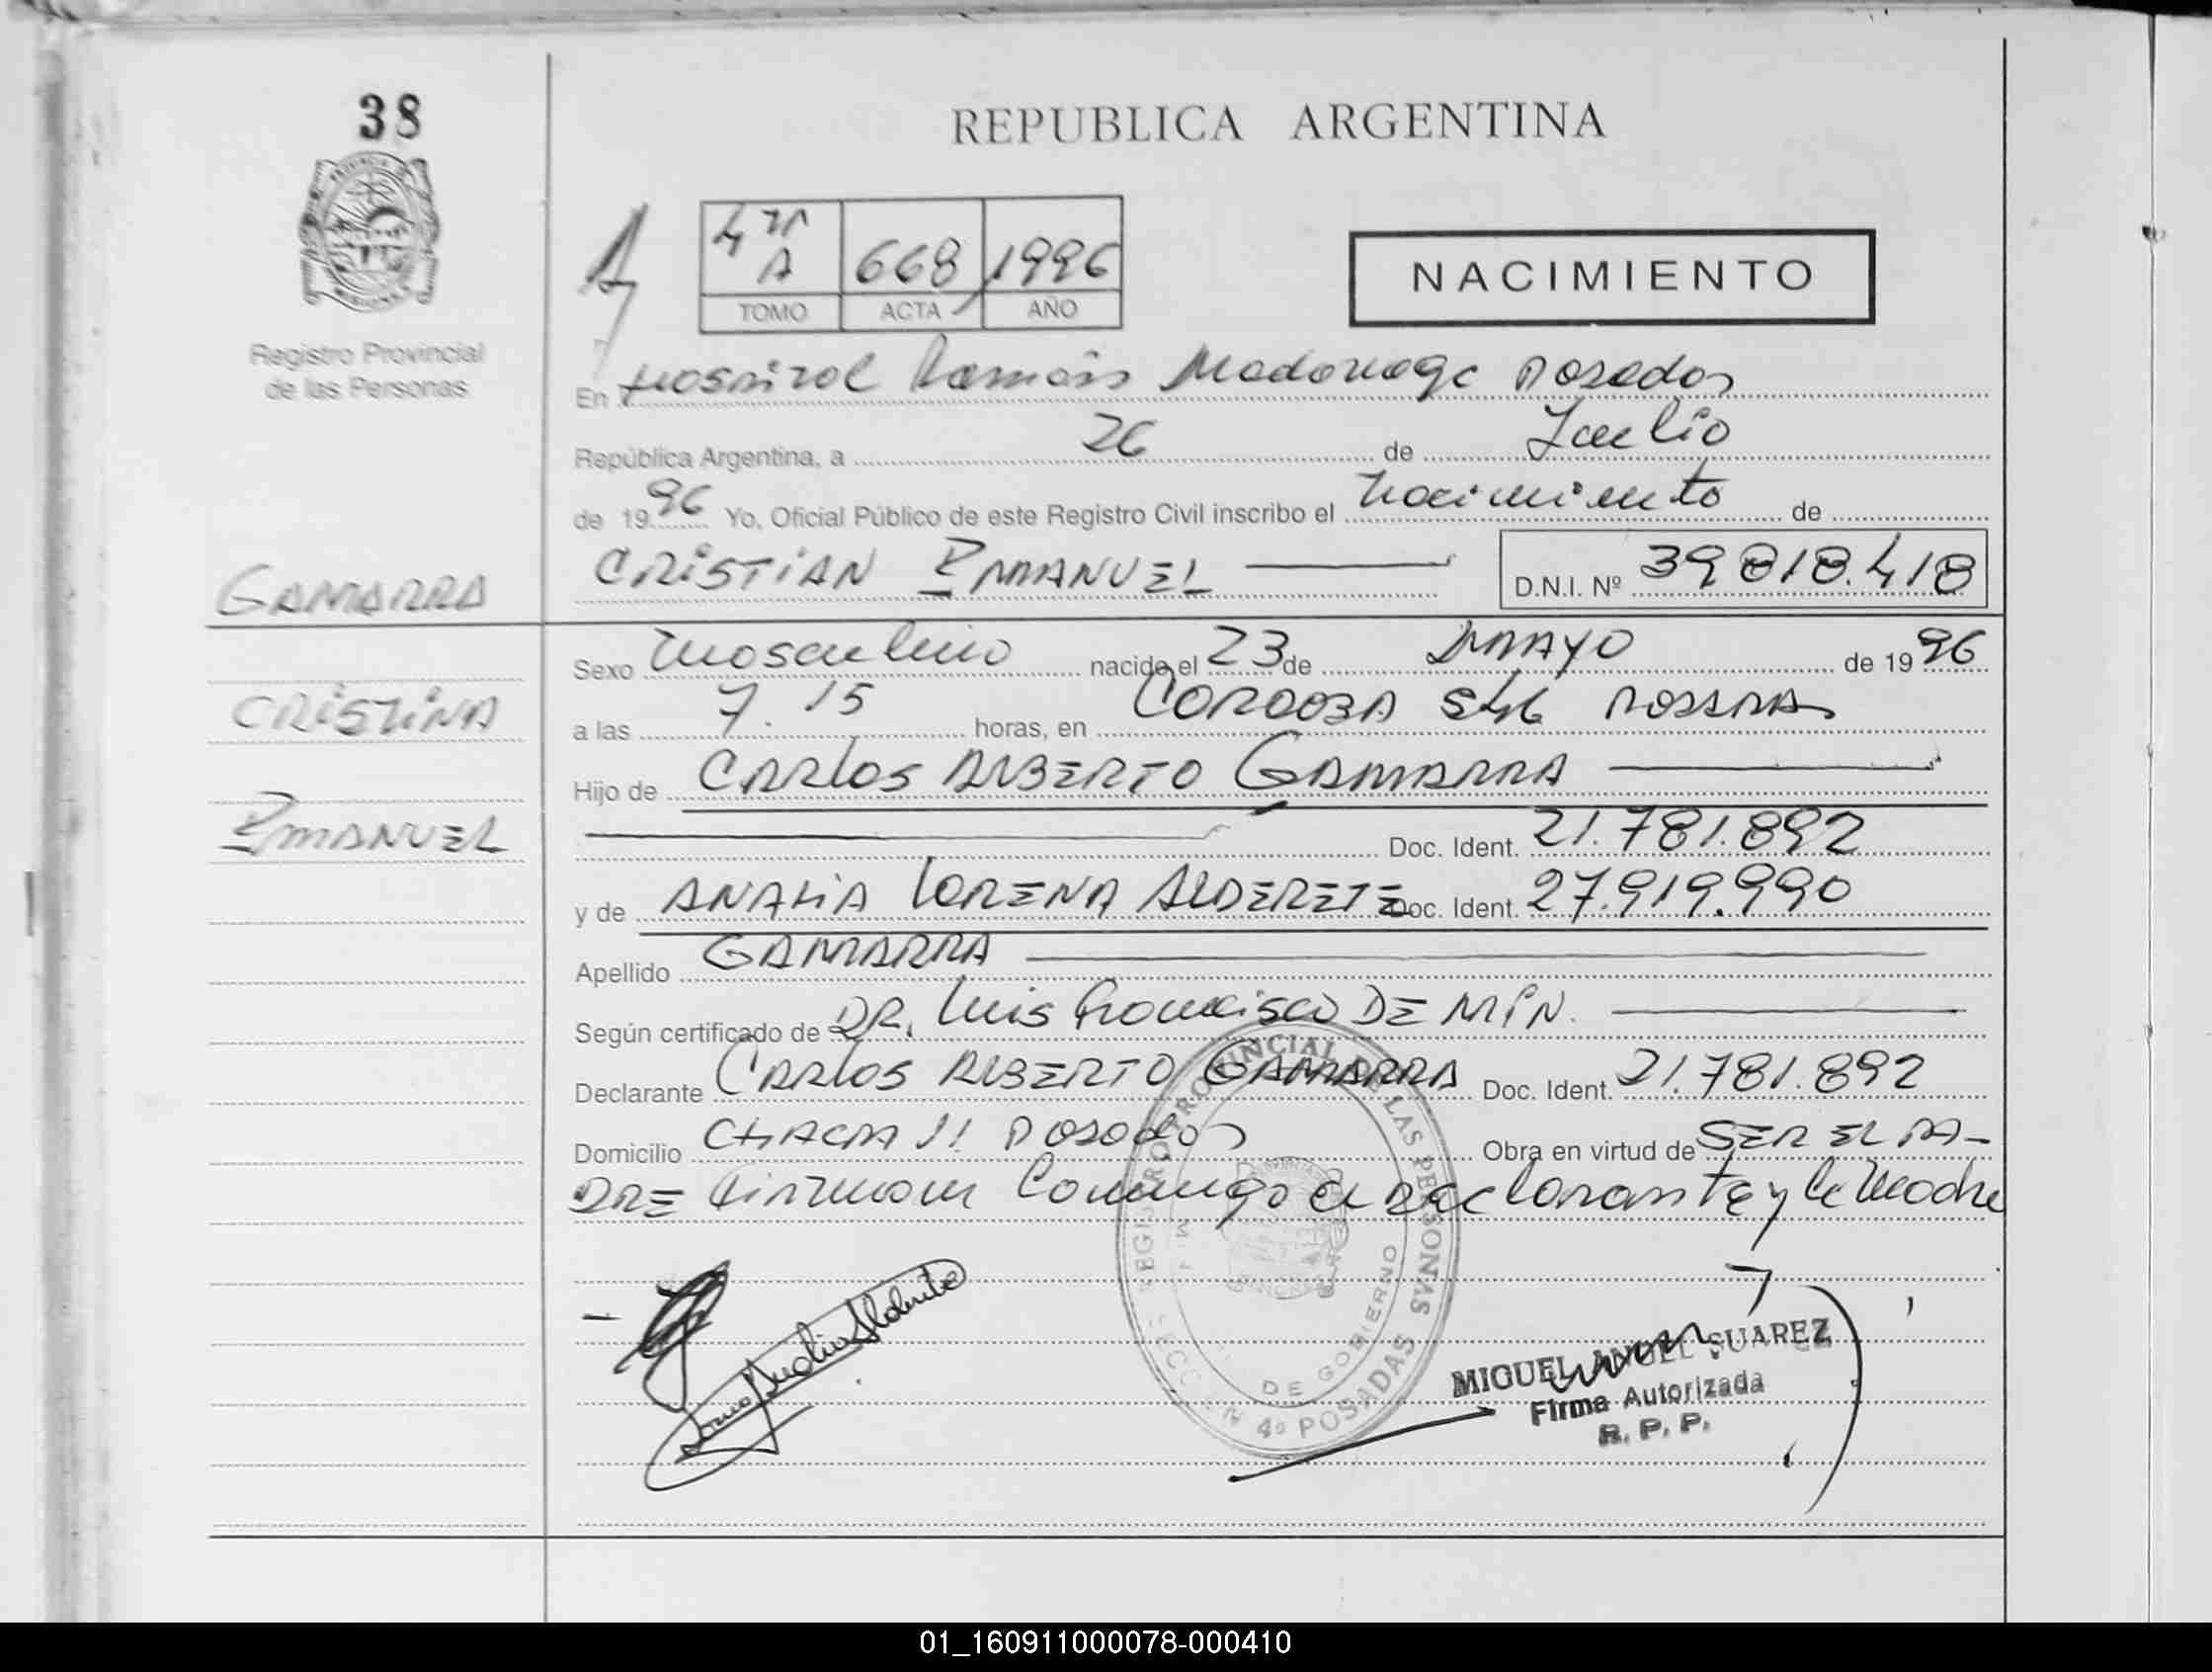 38
REPUBLICA ARGENTINA
4ta A 668 1996
TOMO ACTA AÑO
NACIMIENTO
Registro Provincial
de las Personas
En Hospital Ramón Madariaga Posadas
República Argentina, a 26 de Julio
de 1996 Yo, Oficial Público de este Registro Civil inscribo el nacimiento de
CRISTIAN EMANUEL D.N.I. Nº 39818.418
GAMARRA
CRISTINA
EMANUEL
Sexo masculino nacido el 23 de MAYO de 1996
a las 7.15 horas, en CORDOBA POSADAS
Hijo de CARLOS ALBERTO GAMARRA
Doc. Ident. 21.781.892
y de ANALIA LORENA ALDERETE Doc. Ident. 27.919.990
Apellido GAMARRA
Según certificado de DR. Luis Francisco DE MIN.
Declarante CARLOS ALBERTO GAMARRA Doc. Ident. 21.781.892
Domicilio CHACRA 11 Posadas Obra en virtud de SER EL PA-
DRE Firman Conmigo el declarante y la Madre
REGISTRO PROVINCIAL DE LAS PERSONAS
DE GOBIERNO
SECCION 4ª POSADAS
MIGUEL ANGEL SUAREZ
Firma Autorizada
R. P. P.
01_160911000078-000410